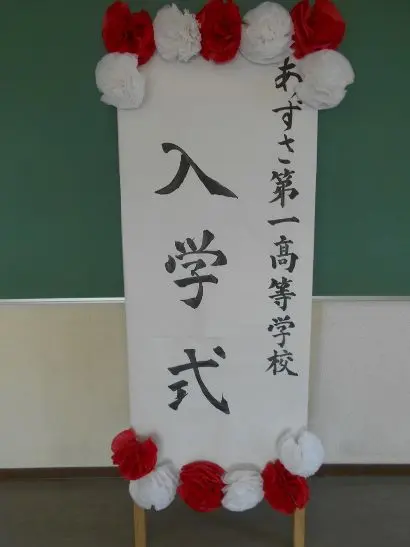 あずさ第一高等学校
入学式